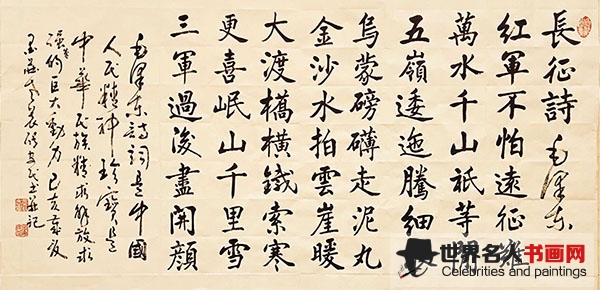 長征詩 毛澤东
紅軍不怕遠征難
萬水千山祇等閒
五嶺逶迤騰細浪
烏蒙磅礴走泥丸
金沙水拍雲崖暖
大渡橋橫鐵索寒
更喜岷山千里雪
三軍過後盡開顏
毛澤东詩詞是中國
人民精神珍寶是
中華民族求解放求
强的巨大動力己亥
世界名人书画网
Celebrities and paintings